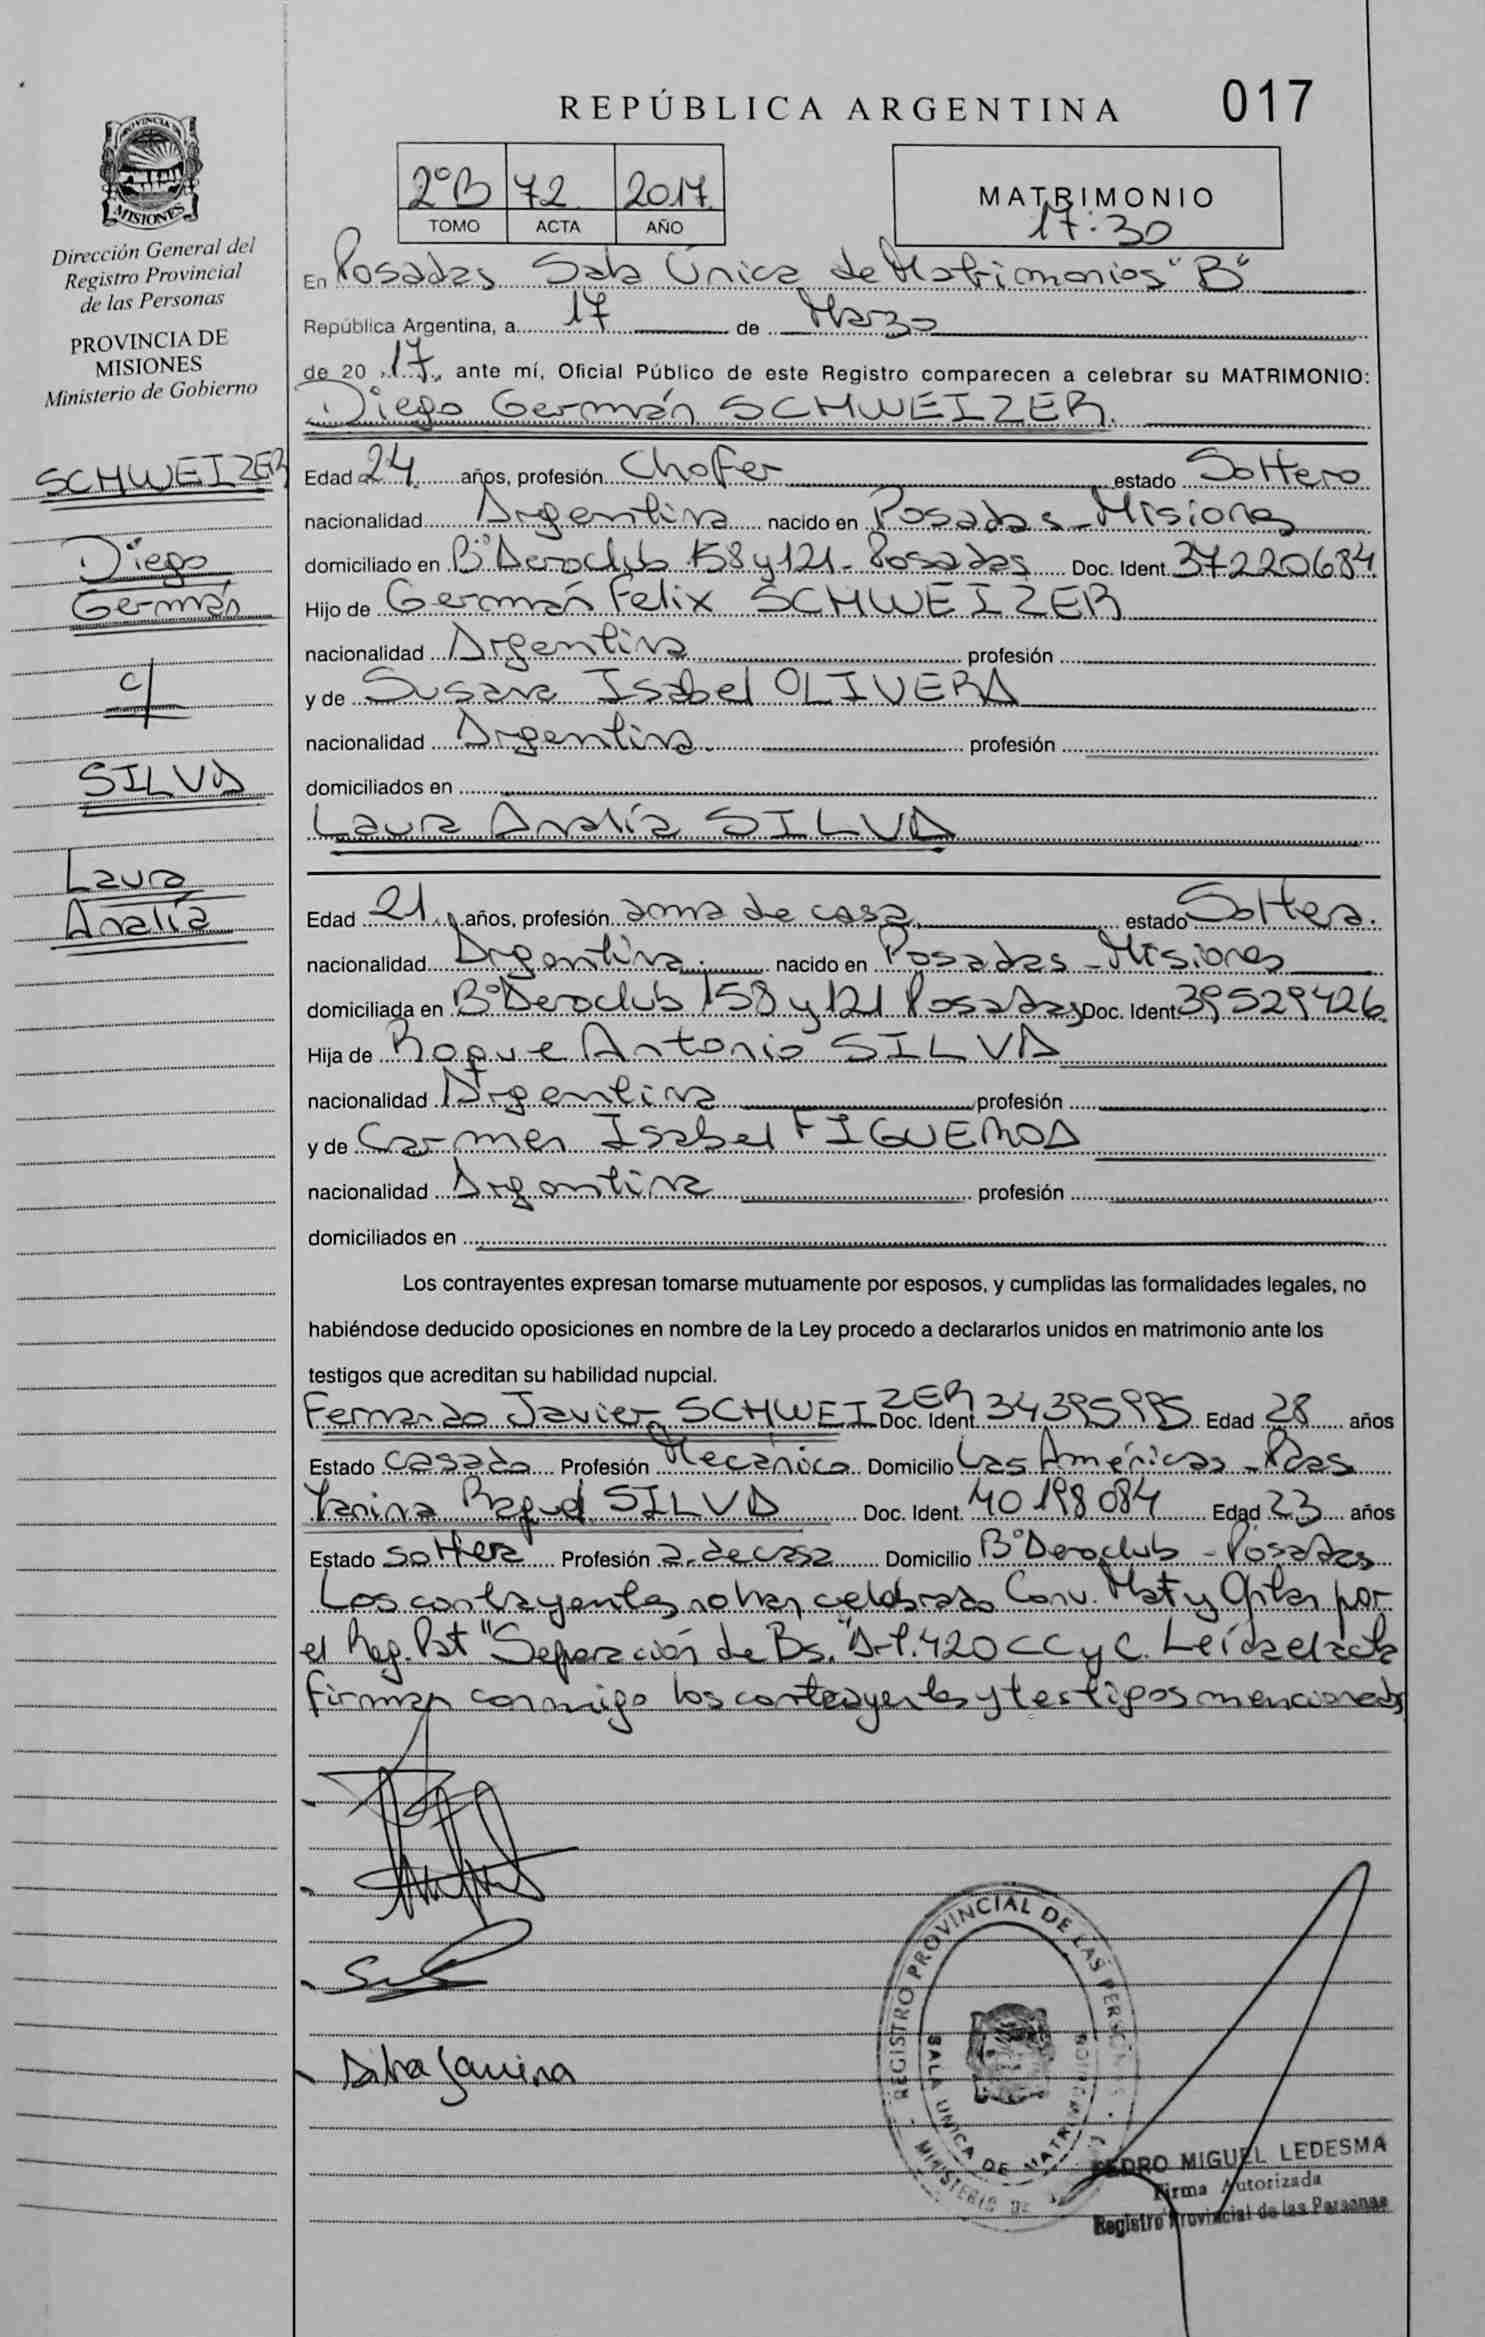 REPÚBLICA ARGENTINA 017
PROVINCIA DE
MISIONES
Dirección General del
Registro Provincial
de las Personas
PROVINCIA DE
MISIONES
Ministerio de Gobierno
2°B 72 2017
TOMO ACTA AÑO
MATRIMONIO
17:30
En Posadas Sala Única de Matrimonios "B"
República Argentina, a 17 de Marzo
de 20 17 ante mí, Oficial Público de este Registro comparecen a celebrar su MATRIMONIO:
Diego Germán SCHWEIZER
SCHWEIZER
Diego
Germán
c/
SILVA
Laura
Analía
Edad 24 años, profesión Chofer estado Soltero
nacionalidad Argentina nacido en Posadas - Misiones
domiciliado en B° Aeroclub 158 y 121 - Posadas Doc. Ident 37220684
Hijo de Germán Felix SCHWEIZER
nacionalidad Argentina profesión
y de Susana Isabel OLIVERA
nacionalidad Argentina profesión
domiciliados en
Laura Analía SILVA
Edad 21 años, profesión ama de casa estado Soltera.
nacionalidad Argentina nacido en Posadas - Misiones
domiciliada en B° Aeroclub 158 y 121 Posadas Doc. Ident 39529426
Hija de Roque Antonio SILVA
nacionalidad Argentina profesión
y de Carmen Isabel FIGUEROA
nacionalidad Argentina profesión
domiciliados en
Los contrayentes expresan tomarse mutuamente por esposos, y cumplidas las formalidades legales, no
habiéndose deducido oposiciones en nombre de la Ley procedo a declararlos unidos en matrimonio ante los
testigos que acreditan su habilidad nupcial.
Fernando Javier SCHWEIZER Doc. Ident 34395995 Edad 28 años
Estado casado Profesión Mecánico Domicilio Las Américas - Pdas
Yanina Raquel SILVA Doc. Ident. 40198084 Edad 23 años
Estado soltera Profesión a. de casa Domicilio B° Aeroclub - Posadas
Los contrayentes no han celebrado Conv. Mat y Optan por
el Reg. Pat "Separación de Bs." Art. 420 CC y C. Leída el acta
firman conmigo los contrayentes y testigos mencionados
Silva Yanina
REGISTRO PROVINCIAL DE LAS PERSONAS
SALA UNICA DE MATRIMONIOS
MINISTERIO DE
PEDRO MIGUEL LEDESMA
Firma Autorizada
Registro Provincial de las Personas